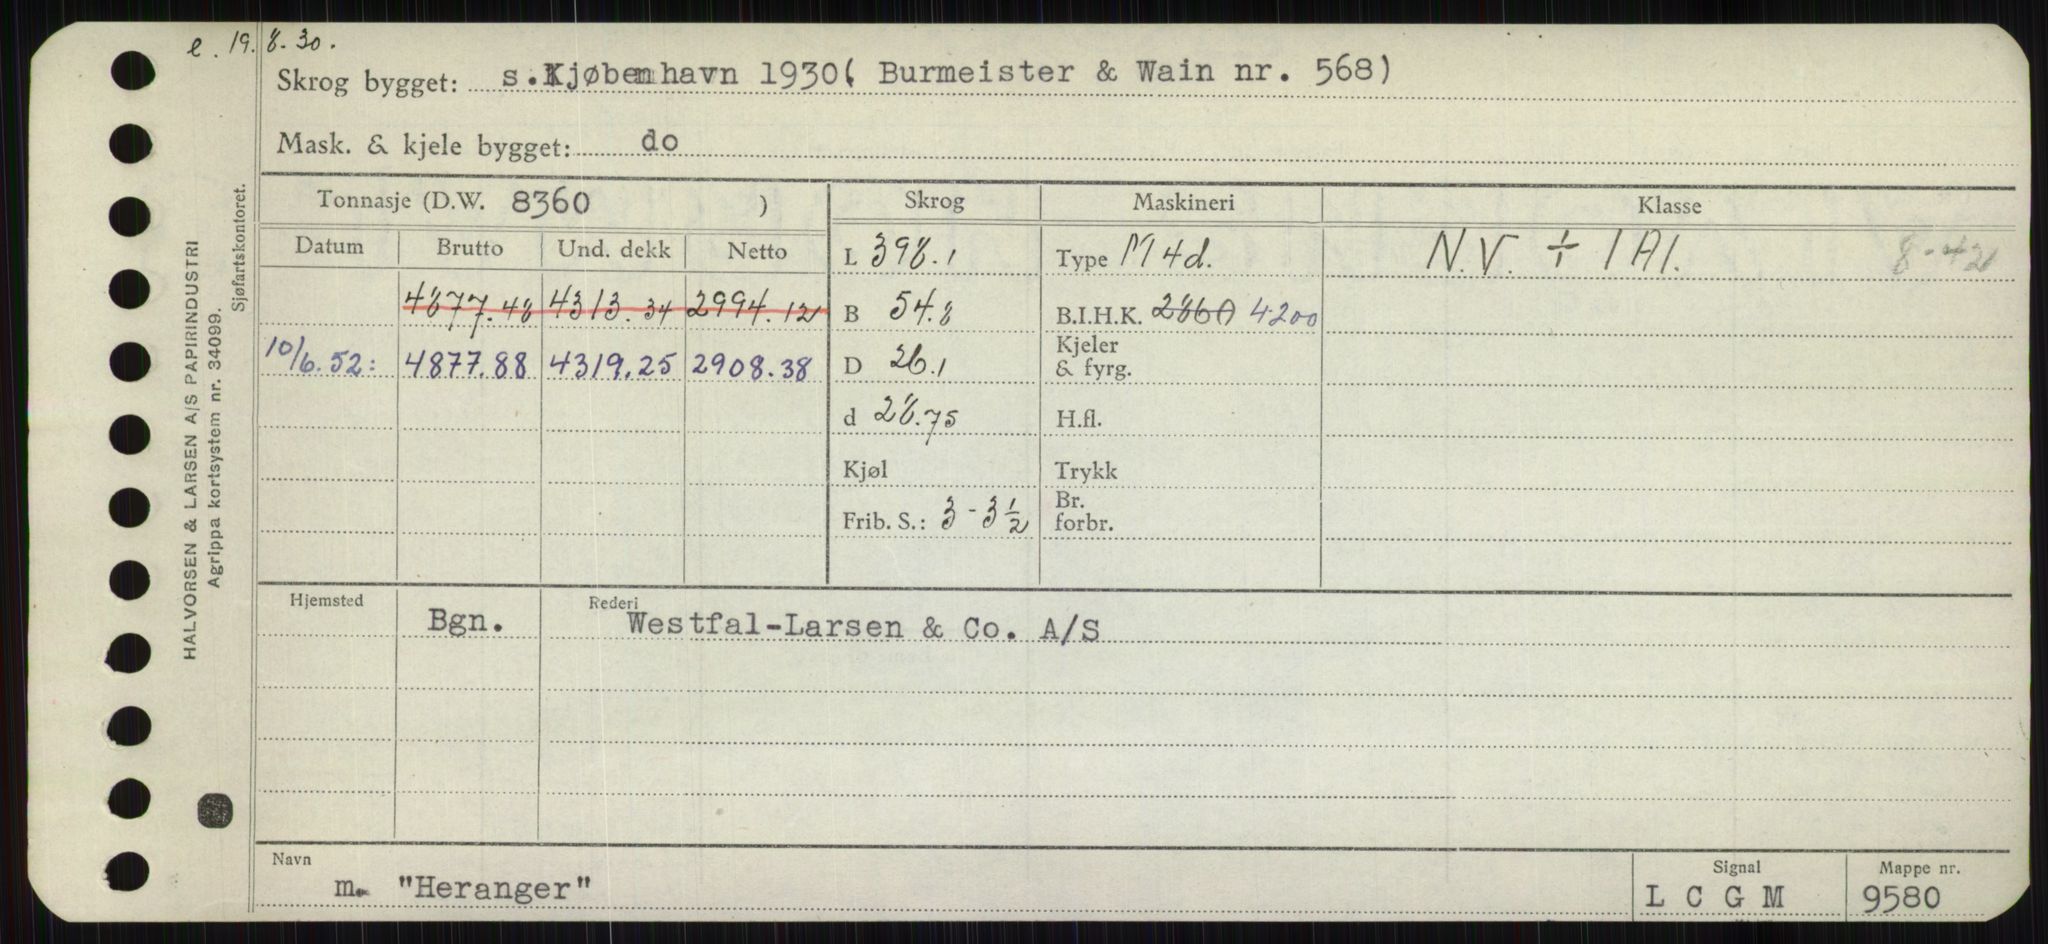 e. 19.8.30.
Skrog bygget: s.Kjøbenhavn 1930( Burmeister & Wain nr. 568)
Mask. & kjele bygget: do
Tonnasje (D.W. 8360 ) Skrog Maskineri Klasse
Datum Brutto Und. dekk Netto L 398.1 Type M 4d. N.V. ÷ 1A1. 8-42
4877.48 4313.34 2994.12 B 54.8 B.I.H.K. 2860 4200
10/6.52: 4877.88 4319.25 2908.38 D 26.1 Kjeler & fyrg.
d 28.75 H.fl.
Kjøl Trykk
Frib. S.: 3-3½ Br. forbr.
Hjemsted Bgn. Rederi Westfal-Larsen & Co. A/S
Navn m. "Heranger" Signal L C G M Mappe nr. 9580
HALVORSEN & LARSEN A/S PAPIRINDUSTRI
Agrippa kortsystem nr. 34099.
Sjøfartskontoret.